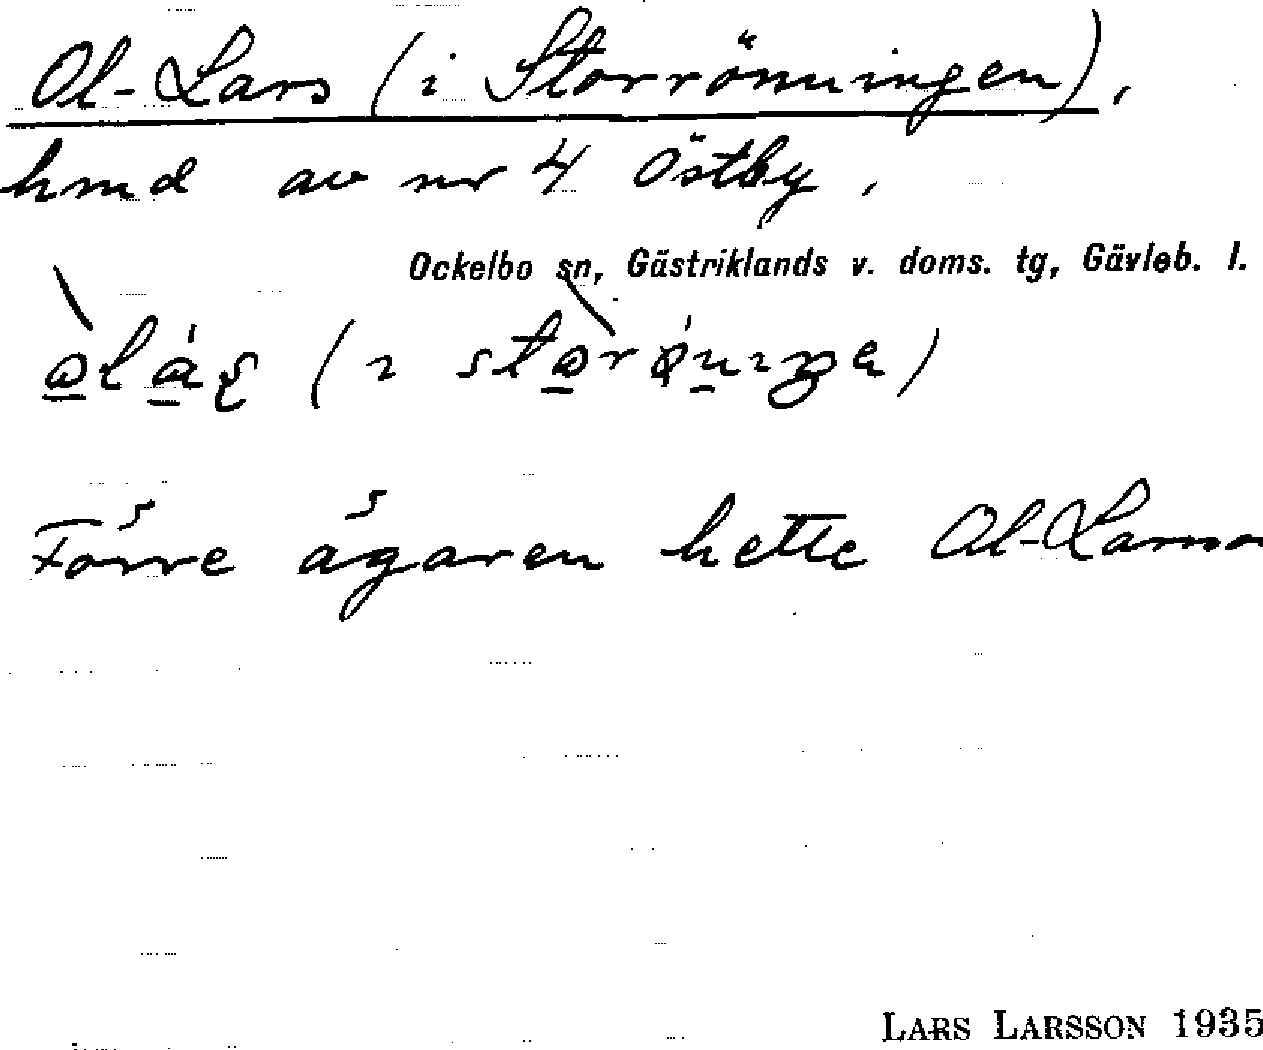 Ol-Lars (i Storrönningen),
hmd av nr 4 Östby,
Ockelbo sn, Gästriklands v. doms. tg, Gävleb. l.
Förre ägaren hette Ol-Larsso
LARS LARSSON 1935